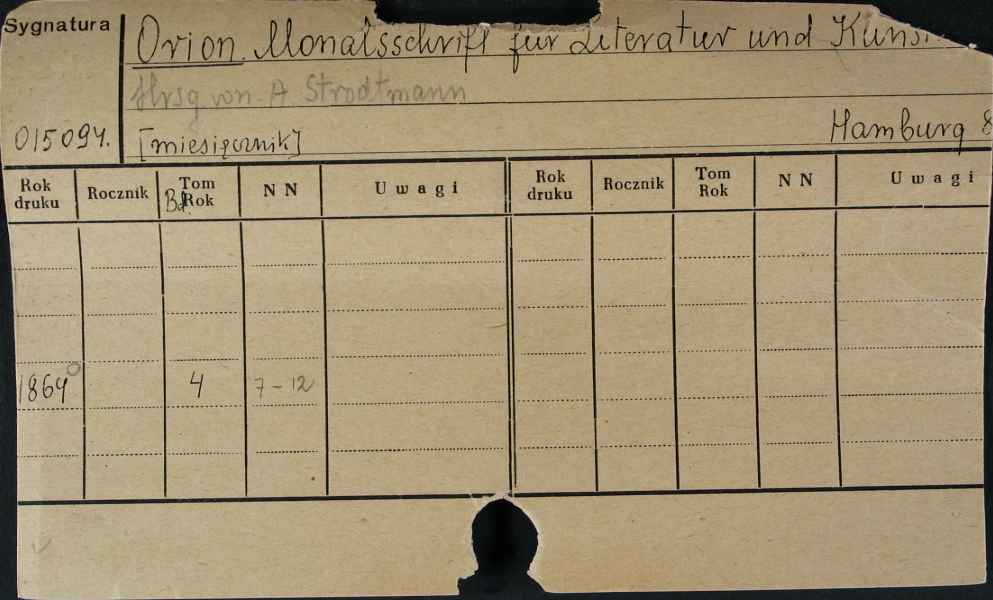 Sygnatura
Orion. Monatsschrift für Literatur und Kunst
Hrsg von. A Strodtmann
015094. [miesięcznik] Hamburg 8
Rok druku Rocznik Tom Rok Bd. N N Uwagi Rok druku Rocznik Tom Rok N N Uwagi
1864 4 7-12